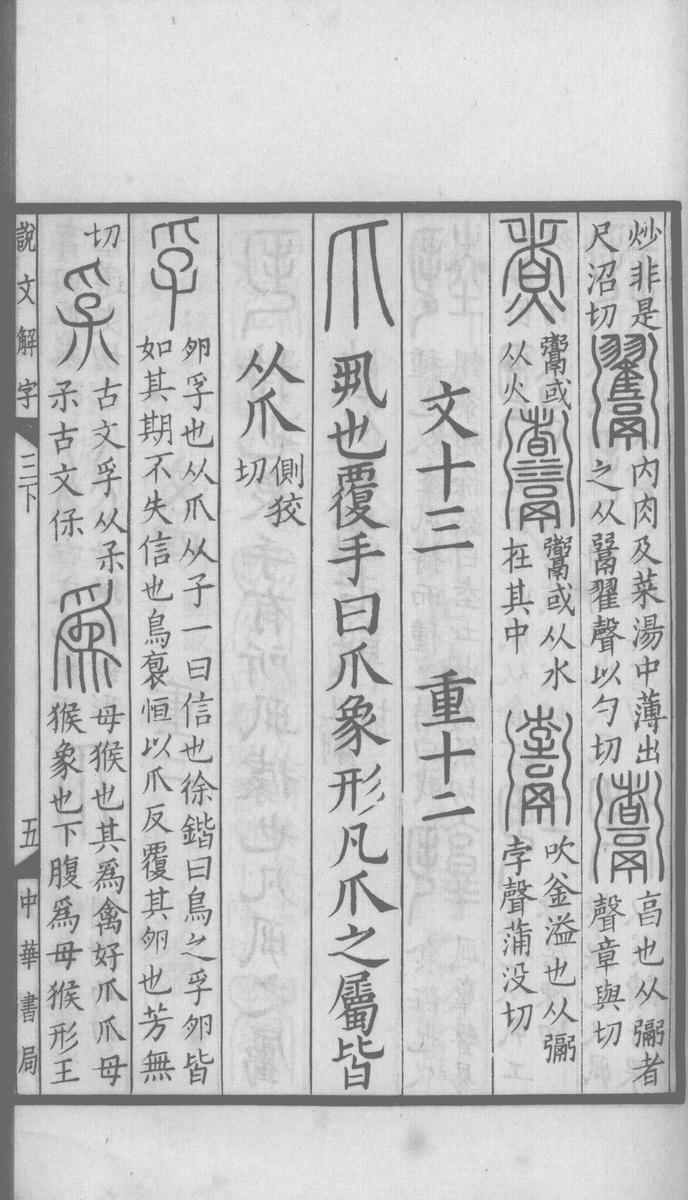 炒非是
尺沼切
内肉及菜湯中薄出
之从䰜翟聲以勺切
亯也从䰜者
聲章與切
鬻或
从火
鬻或从水
在其中
吹釜溢也从䰜
孛聲蒲没切
文十三 重十二
爪 丮也覆手曰爪象形凡爪之屬皆
从爪
側狡
切
孚
卵孚也从爪从子一曰信也徐鍇曰鳥之孚卵皆
如其期不失信也鳥褱恒以爪反覆其卵也芳無
切
古文孚从𤓽
𤓽古文保
爲
母猴也其爲禽好爪爪母
猴象也下腹爲母猴形王
說文解字 三下 五 中華書局